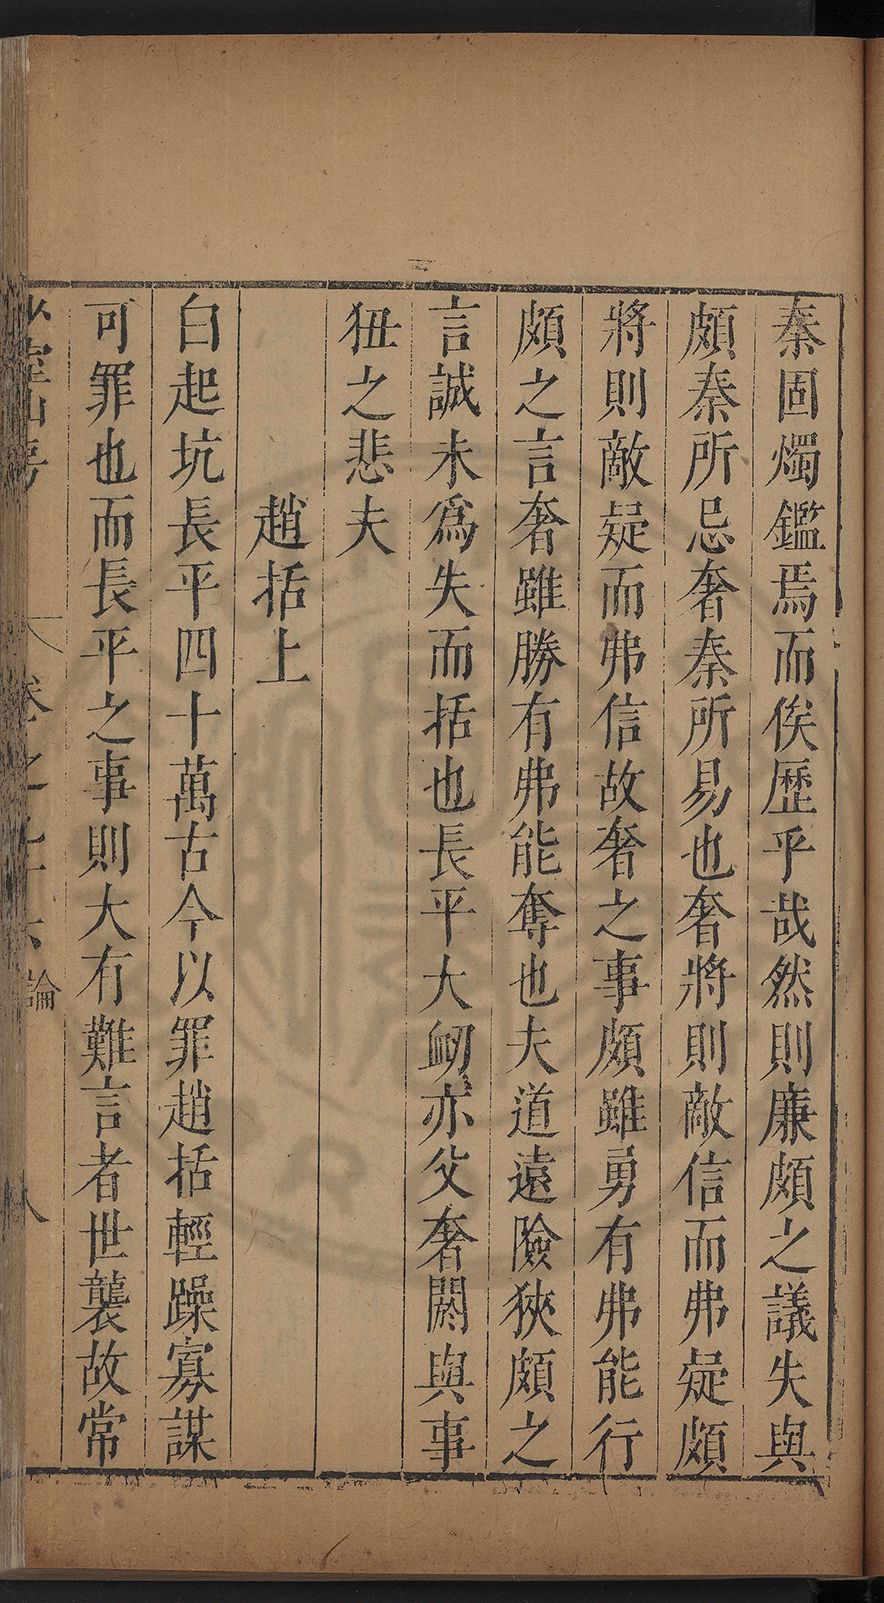 秦固燭鑑焉而俟歷乎哉然則廉頗之議失與
頗秦所忌奢秦所易也奢將則敵信而弗疑頗
將則敵疑而弗信故奢之事頗雖勇有弗能行
頗之言奢雖勝有弗能奪也夫道遠險狹頗之
言誠未爲失而括也長平大衂亦父奢閼與事
狃之悲夫
趙括上
白起坑長平四十萬古今以罪趙括輕躁寡謀
可罪也而長平之事則大有難言者世襲故常
論
八